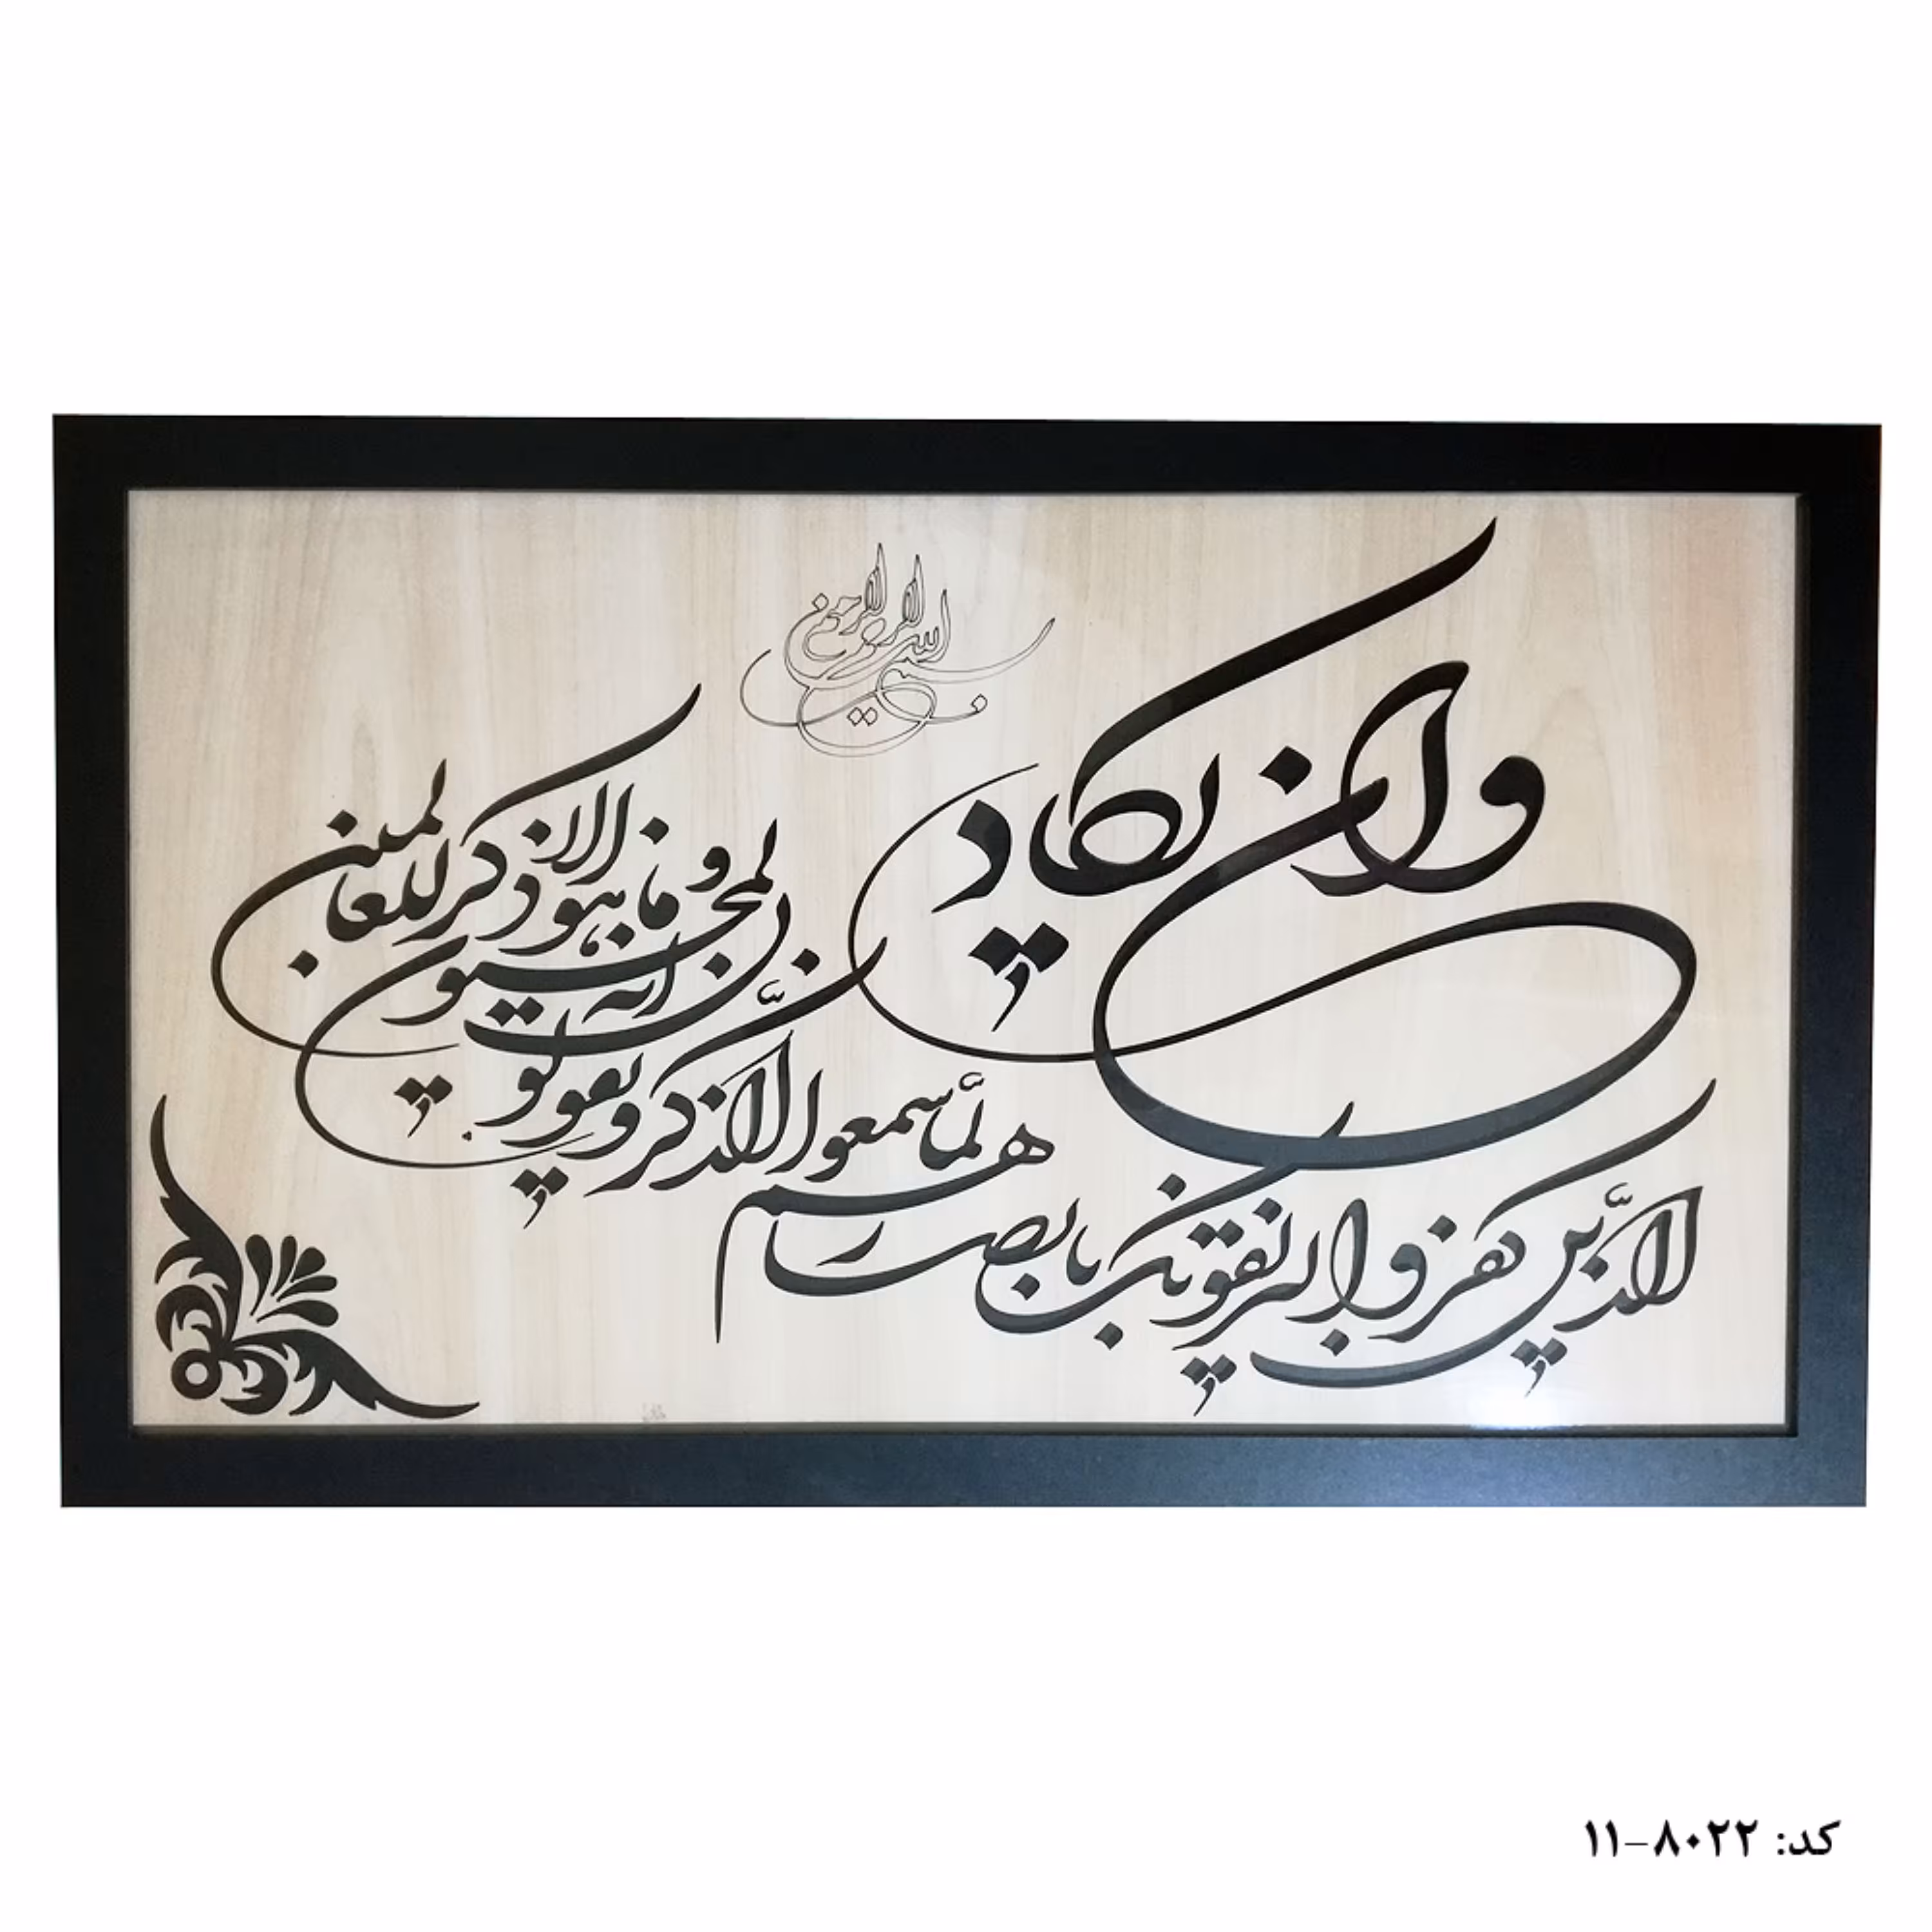 بسم الله الرحمن الرحیم
وان یکاد
الذین کفروا لیزلقونک بابصارهم
لمّا سمعوا الذّکر و یقولون
انه لمجنون
و ما هو الا ذکر للعالمین
کد: ۸۰۲۲-۱۱